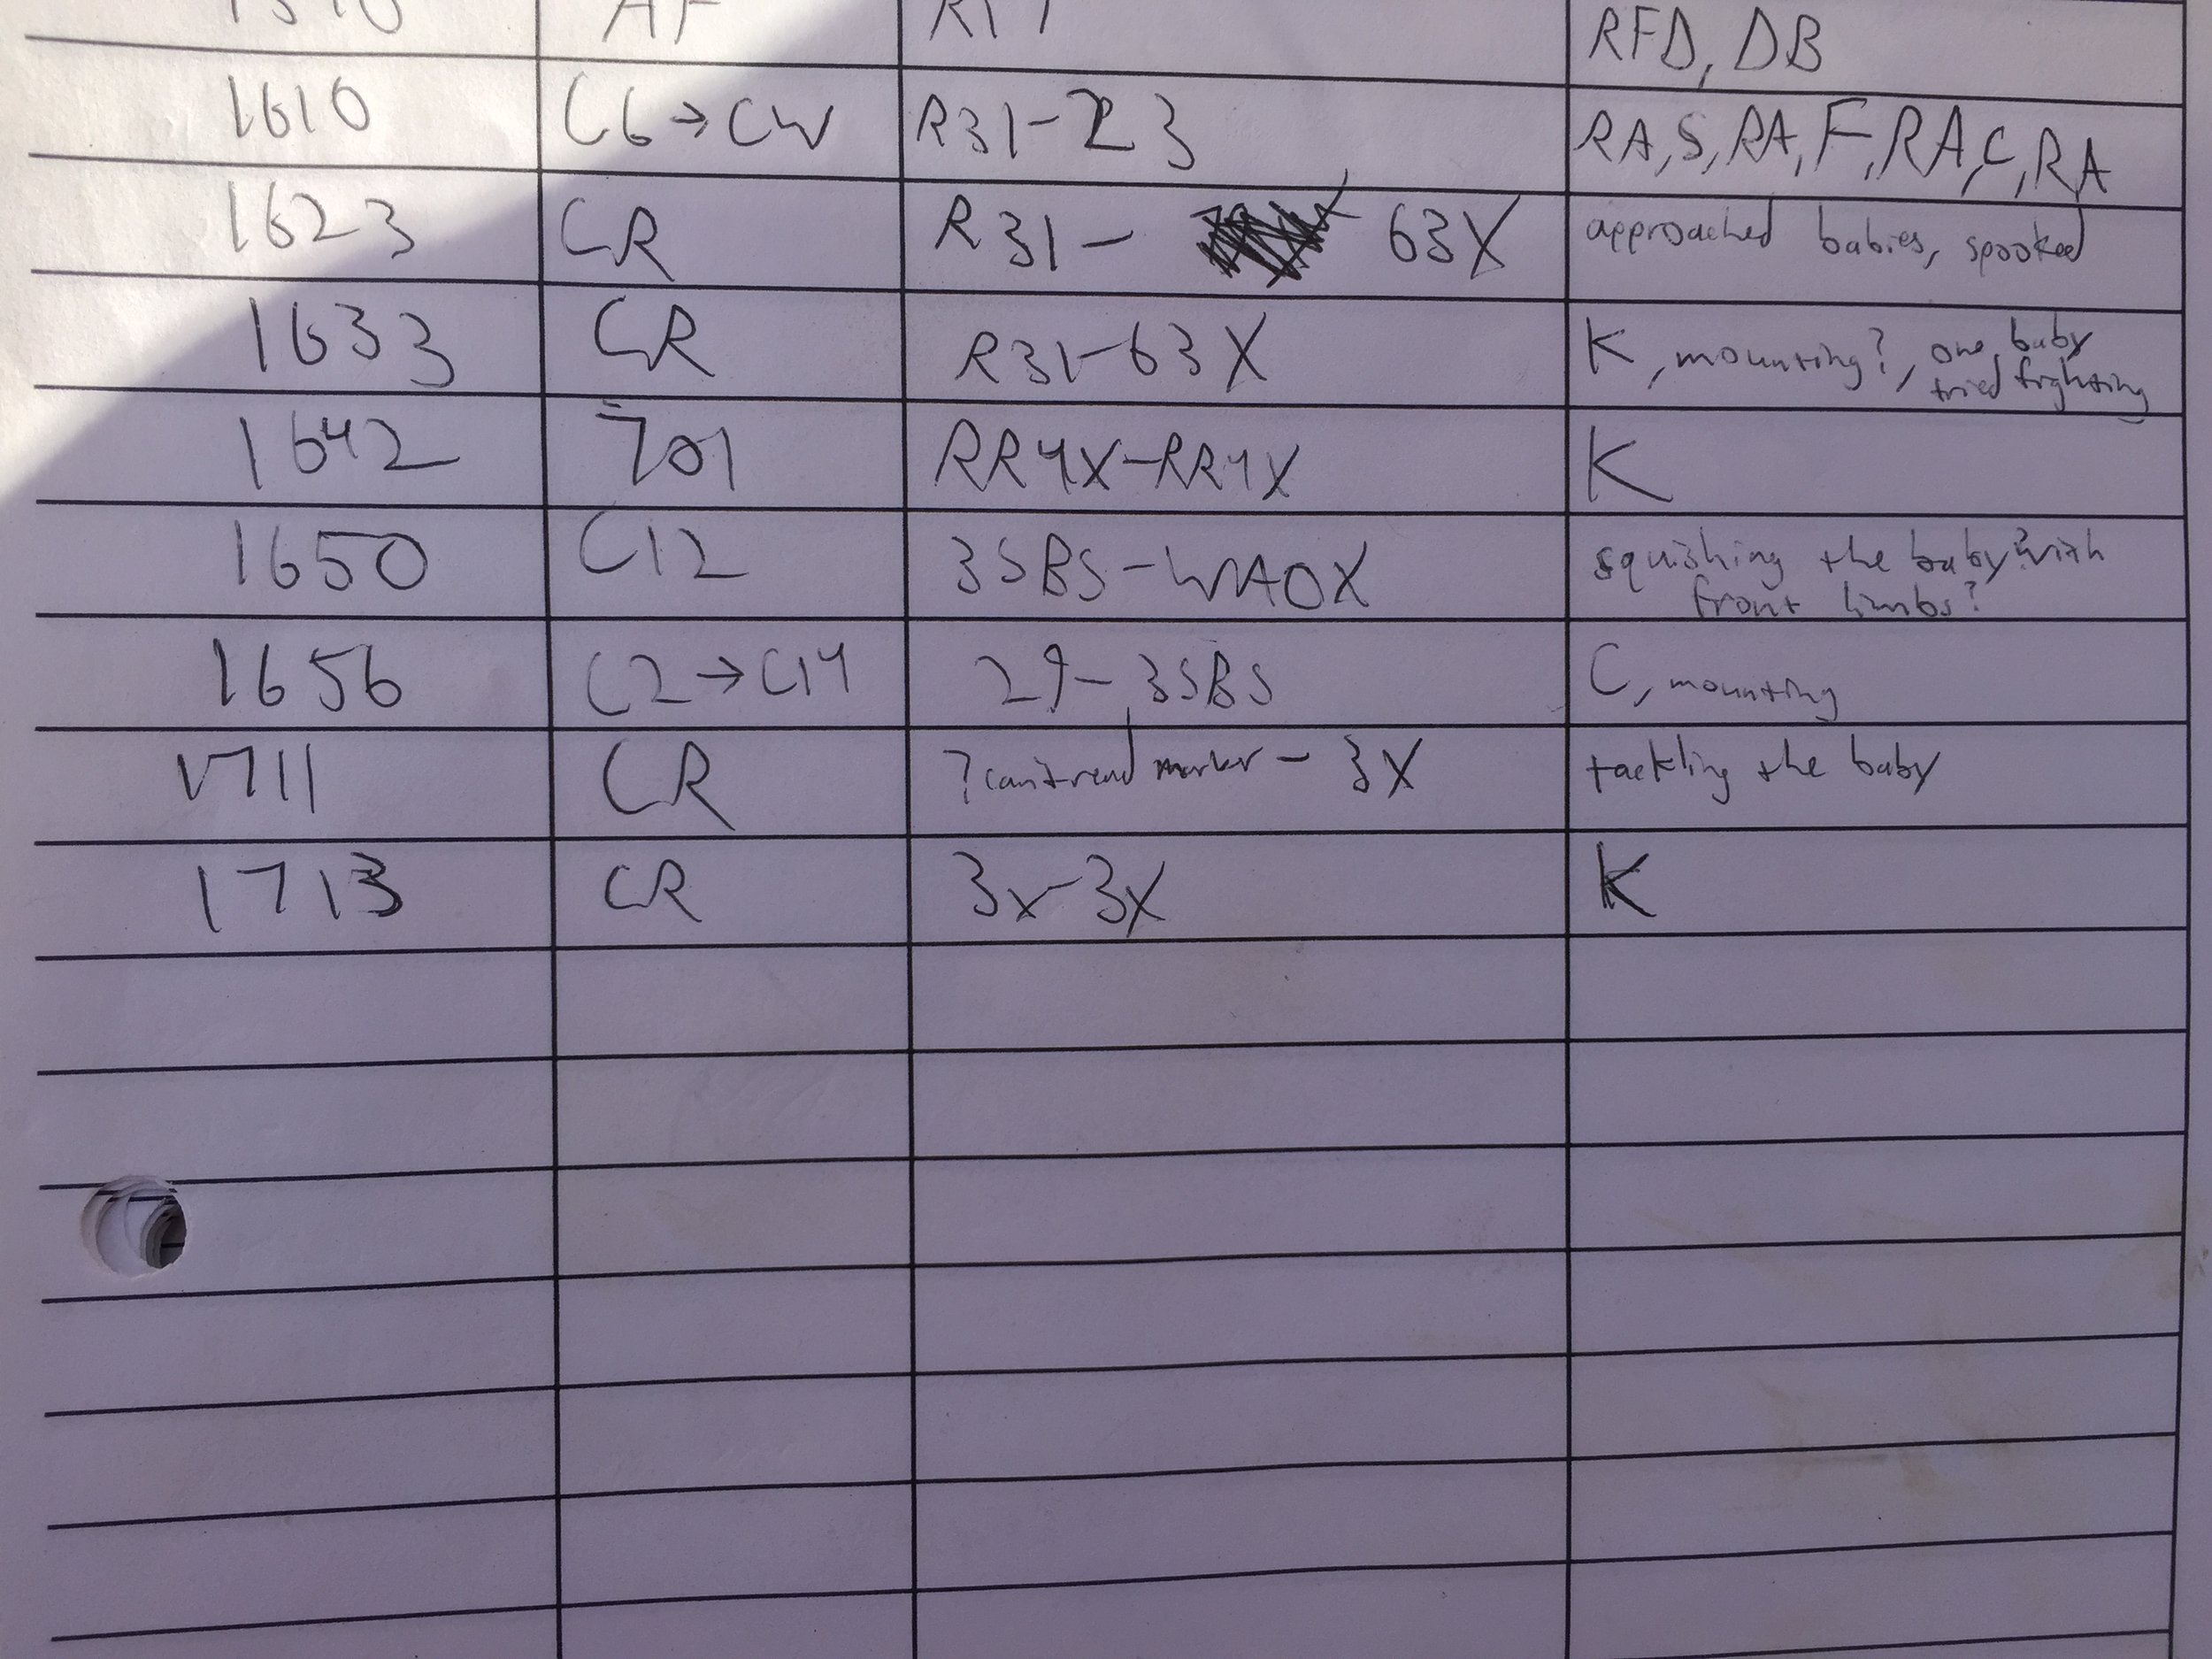 RFD, DB
1610 C6→CW R31-23 RA,S,RA,F,RA,C,RA
1623 CR R31- 63X approached babies, spooked
1633 CR R31-63X K, mounting?, one baby
tried fighting
1642 701 RR4X-RR4X K
1650 C12 3SBS-WAOX squishing the baby? with
front limbs?
1656 C2→C14 29-3SBS C, mounting
1711 CR ? can't read marker - 3X tackling the baby
1713 CR 3x-3X K